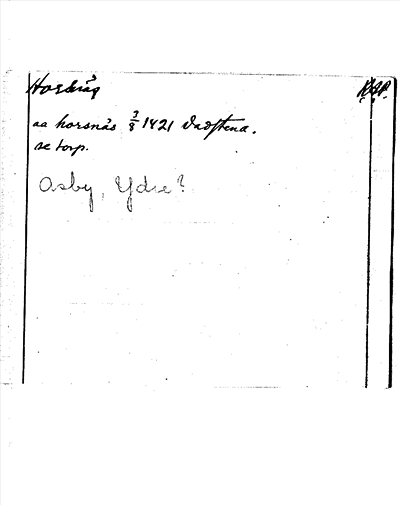 Horsnäs RAP.
aa horsnäs 3/8 1421 Vadstena.
se torp.
Asby, Ydre?